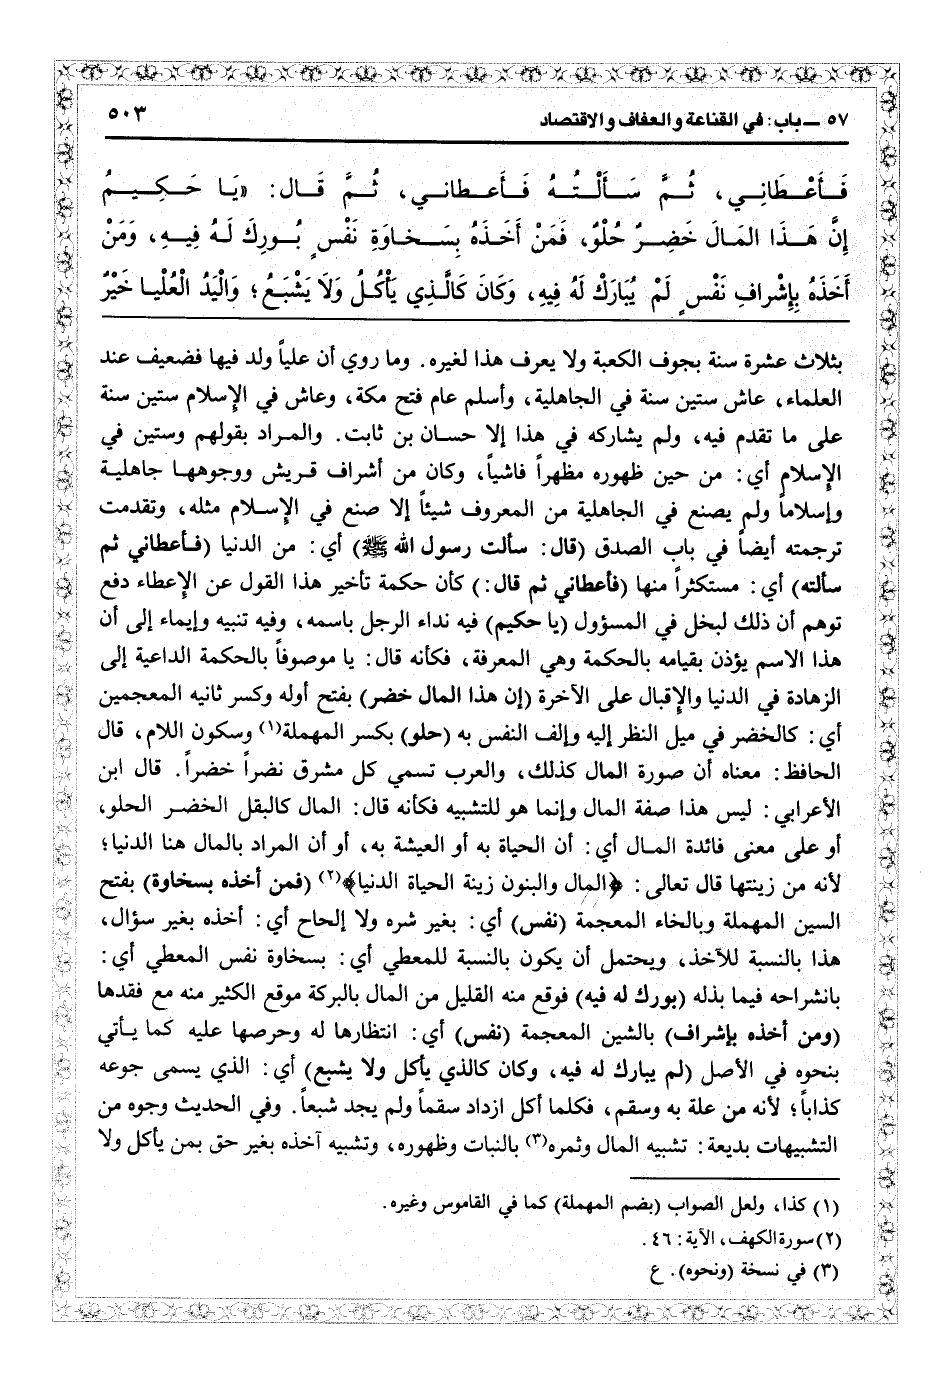 ٥٧ ــ باب: في القناعة والعفاف والاقتصاد
٥٠٣
فَـأَعْـطَـانِـي، ثُـمَّ سَـأَلْـتُـهُ فَـأَعـطـانـي، ثُـمَّ قَـال: «يَـا حَـكِـيـمُ
إِنَّ هَـذَا المَـالَ خَضِـرٌ حُلْوٌ، فَمَنْ أَخَذَهُ بِسَـخاوَةِ نَفْسٍ بُورِكَ لَـهُ فِيـهِ، وَمَنْ
أَخَذَهُ بِإِشْرافِ نَفْسٍ لَمْ يُبَارَكْ لَهُ فِيهِ، وَكَانَ كَالَّذِي يَأْكُـلُ وَلَا يَشْبَعُ؛ وَالْيَدُ الْعُلْيـا خَيْرٌ
بثلاث عشرة سنة بجوف الكعبة ولا يعرف هذا لغيره. وما روي أن علياً ولد فيها فضعيف عند
العلماء، عاش ستين سنة في الجاهلية، وأسلم عام فتح مكة، وعاش في الإسلام ستين سنة
على ما تقدم فيه، ولم يشاركه في هذا إلا حسان بن ثابت. والمراد بقولهم وستين في
الإسلام أي: من حين ظهوره مظهراً فاشياً، وكان من أشراف قريش ووجوهها جاهلية
وإسلاماً ولم يصنع في الجاهلية من المعروف شيئاً إلا صنع في الإسلام مثله، وتقدمت
ترجمته أيضاً في باب الصدق (قال: سألت رسول الله ﷺ) أي: من الدنيا (فأعطاني ثم
سألته) أي: مستكثراً منها (فأعطاني ثم قال:) كأن حكمة تأخير هذا القول عن الإعطاء دفع
توهم أن ذلك لبخل في المسؤول (يا حكيم) فيه نداء الرجل باسمه، وفيه تنبيه وإيماء إلى أن
هذا الاسم يؤذن بقيامه بالحكمة وهي المعرفة، فكأنه قال: يا موصوفاً بالحكمة الداعية إلى
الزهادة في الدنيا والإقبال على الآخرة (إن هذا المال خضر) بفتح أوله وكسر ثانيه المعجمين
أي: كالخضر في ميل النظر إليه وإلف النفس به (حلو) بكسر المهملة(١) وسكون اللام، قال
الحافظ: معناه أن صورة المال كذلك، والعرب تسمي كل مشرق نضراً خضراً. قال ابن
الأعرابي: ليس هذا صفة المال وإنما هو للتشبيه فكأنه قال: المال كالبقل الخضر الحلو،
أو على معنى فائدة المال أي: أن الحياة به أو العيشة به، أو أن المراد بالمال هنا الدنيا؛
لأنه من زينتها قال تعالى: ﴿المال والبنون زينة الحياة الدنيا﴾(٢) (فمن أخذه بسخاوة) بفتح
السين المهملة وبالخاء المعجمة (نفس) أي: بغير شره ولا إلحاح أي: أخذه بغير سؤال،
هذا بالنسبة للآخذ، ويحتمل أن يكون بالنسبة للمعطي أي: بسخاوة نفس المعطي أي:
بانشراحه فيما بذله (بورك له فيه) فوقع منه القليل من المال بالبركة موقع الكثير منه مع فقدها
(ومن أخذه بإشراف) بالشين المعجمة (نفس) أي: انتظارها له وحرصها عليه كما يأتي
بنحوه في الأصل (لم يبارك له فيه، وكان كالذي يأكل ولا يشبع) أي: الذي يسمى جوعه
كذاباً؛ لأنه من علة به وسقم، فكلما أكل ازداد سقماً ولم يجد شبعاً. وفي الحديث وجوه من
التشبيهات بديعة: تشبيه المال وثمره(٣) بالنبات وظهوره، وتشبيه آخذه بغير حق بمن يأكل ولا
(١) كذا، ولعل الصواب (بضم المهملة) كما في القاموس وغيره.
(٢) سورة الكهف، الآية: ٤٦.
(٣) في نسخة (ونحوه). ع